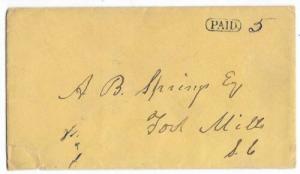 PAID 5
A B. Springs Eq
Fort Mills
S. C